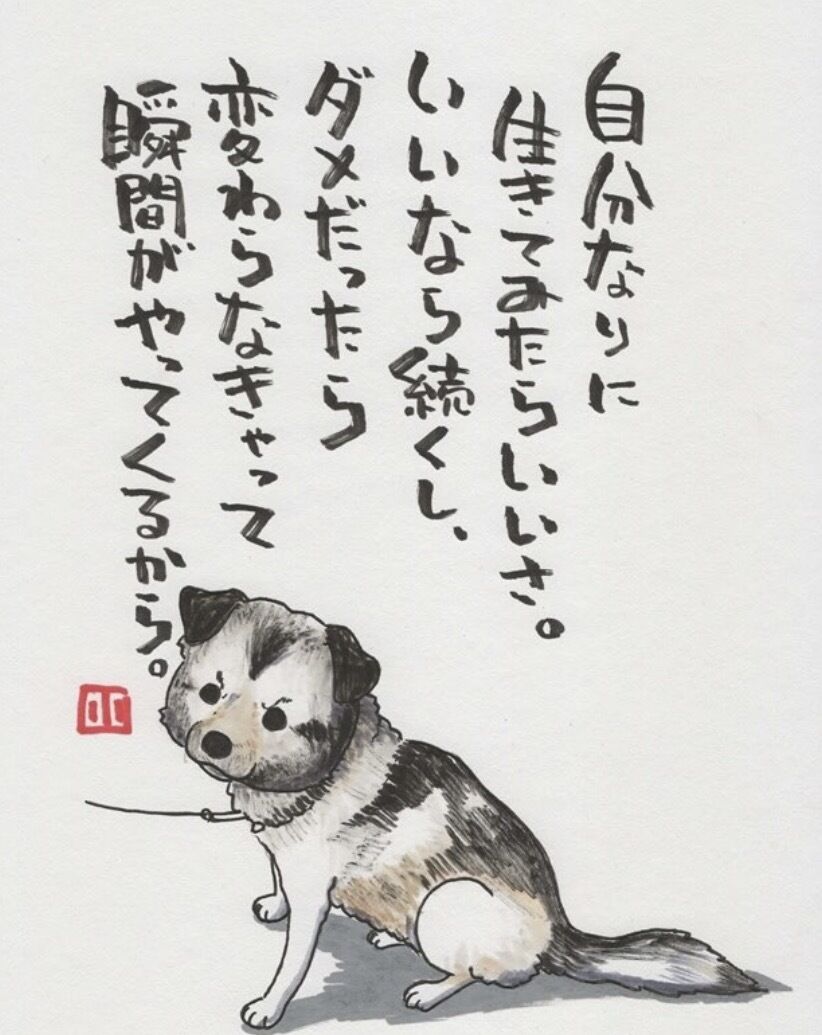 自分なりに
生きてみたらいいさ。
いいなら続くし、
ダメだったら
変わらなきゃって
瞬間がやってくるから。